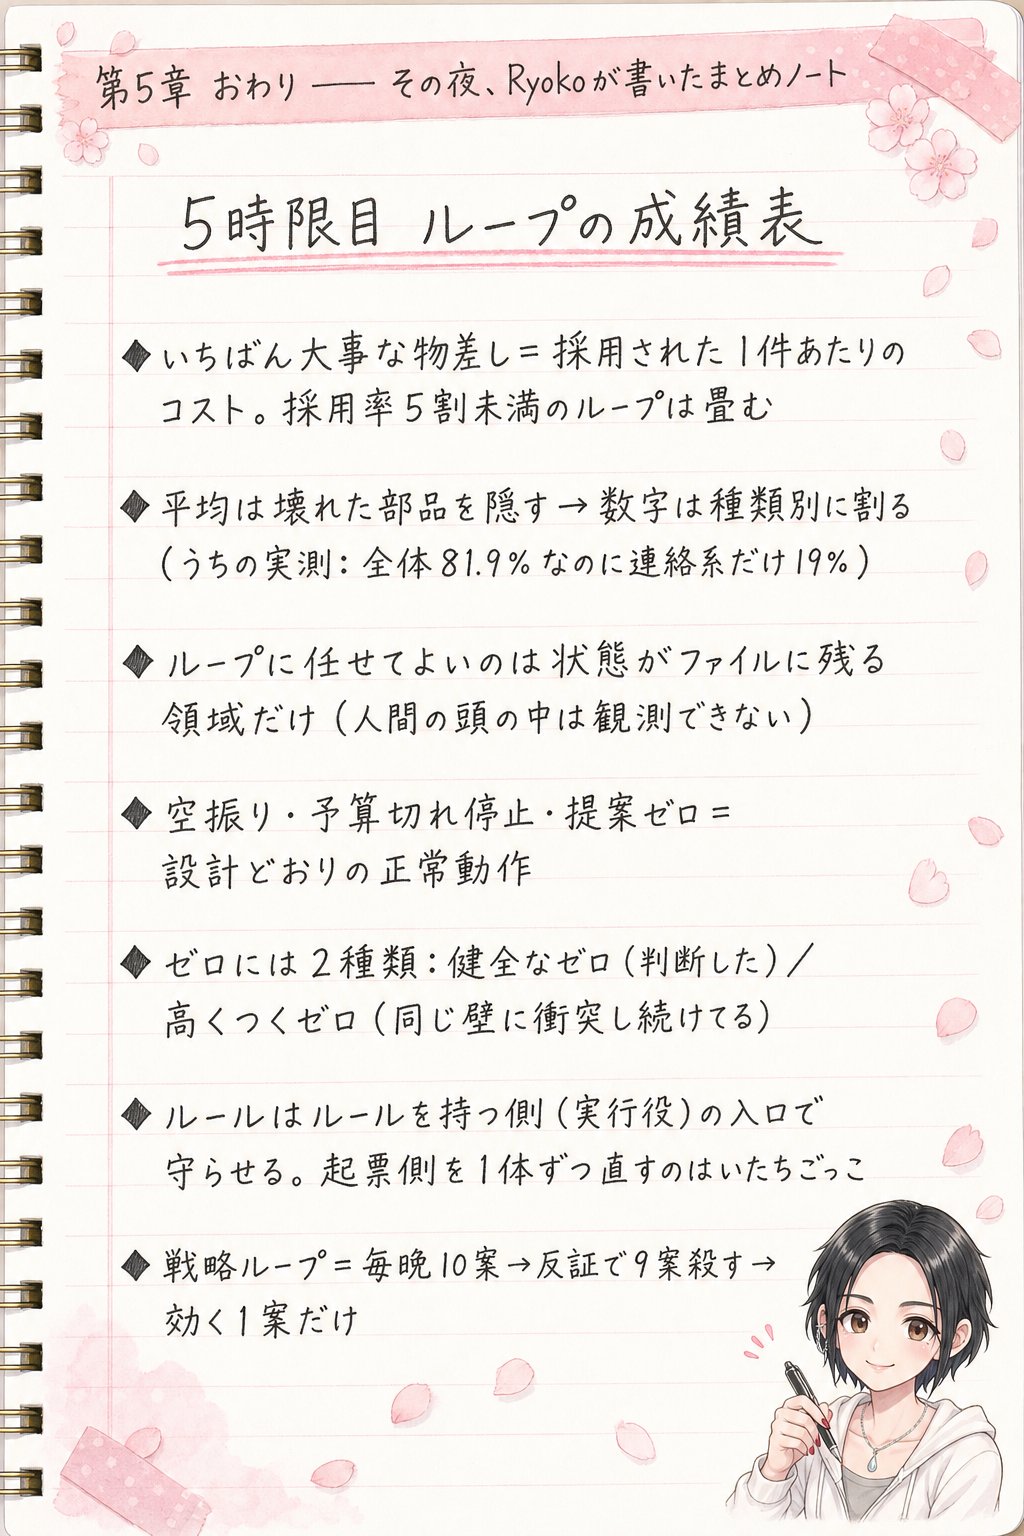 第5章 おわり ―― その夜、Ryokoが書いたまとめノート
5時限目 ループの成績表
◆いちばん大事な物差し=採用された1件あたりの
コスト。採用率5割未満のループは畳む
◆平均は壊れた部品を隠す→数字は種類別に割る
(うちの実測:全体81.9%なのに連絡系だけ19%)
◆ループに任せてよいのは状態がファイルに残る
領域だけ(人間の頭の中は観測できない)
◆空振り・予算切れ停止・提案ゼロ=
設計どおりの正常動作
◆ゼロには2種類:健全なゼロ(判断した)/
高くつくゼロ(同じ壁に衝突し続けてる)
◆ルールはルールを持つ側(実行役)の入口で
守らせる。起票側を1体ずつ直すのはいたちごっこ
◆戦略ループ=毎晩10案→反証で9案殺す→
効く1案だけ